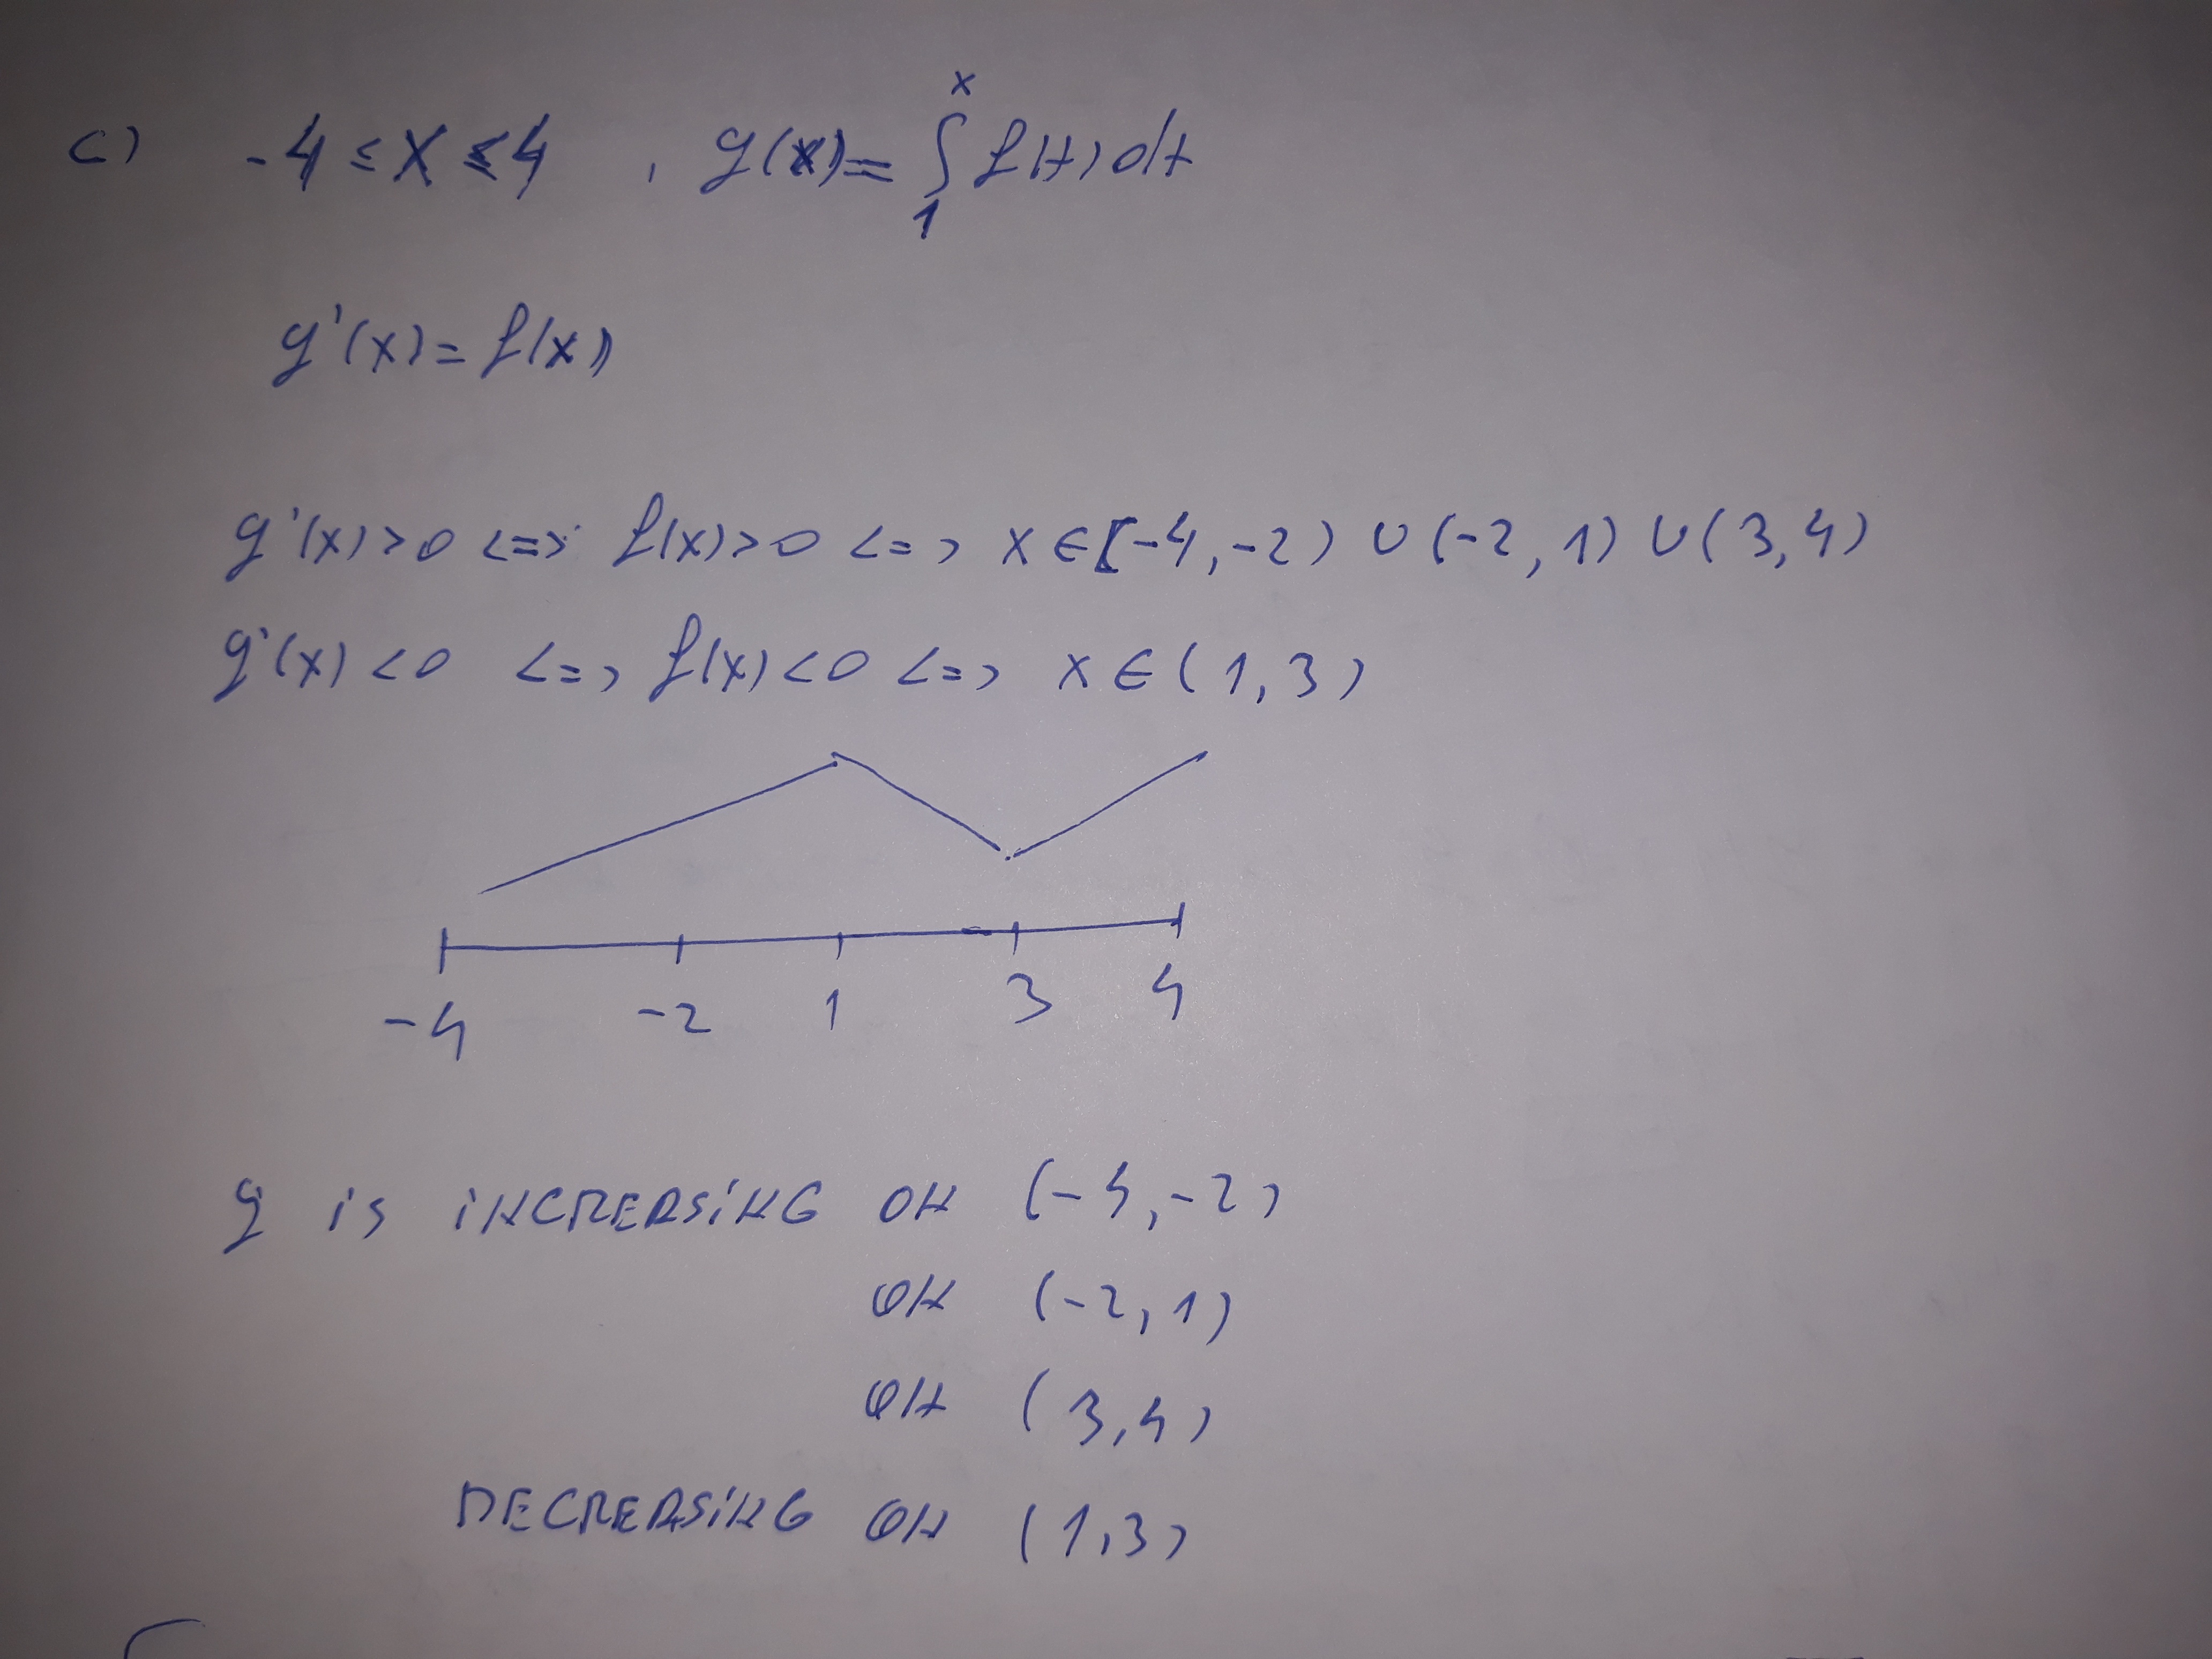 c) -4 ≤ x ≤ 4 , g(x) = ∫₁ˣ f(t) dt
g'(x) = f(x)
g'(x) > 0 <=> f(x) > 0 <=> x ∈ [-4, -2) ∪ (-2, 1) ∪ (3, 4)
g'(x) < 0 <=> f(x) < 0 <=> x ∈ (1, 3)
-4 -2 1 3 4
g is iNCREASiNG ON (-4, -2)
ON (-2, 1)
ON (3, 4)
DECREASiNG ON (1, 3)